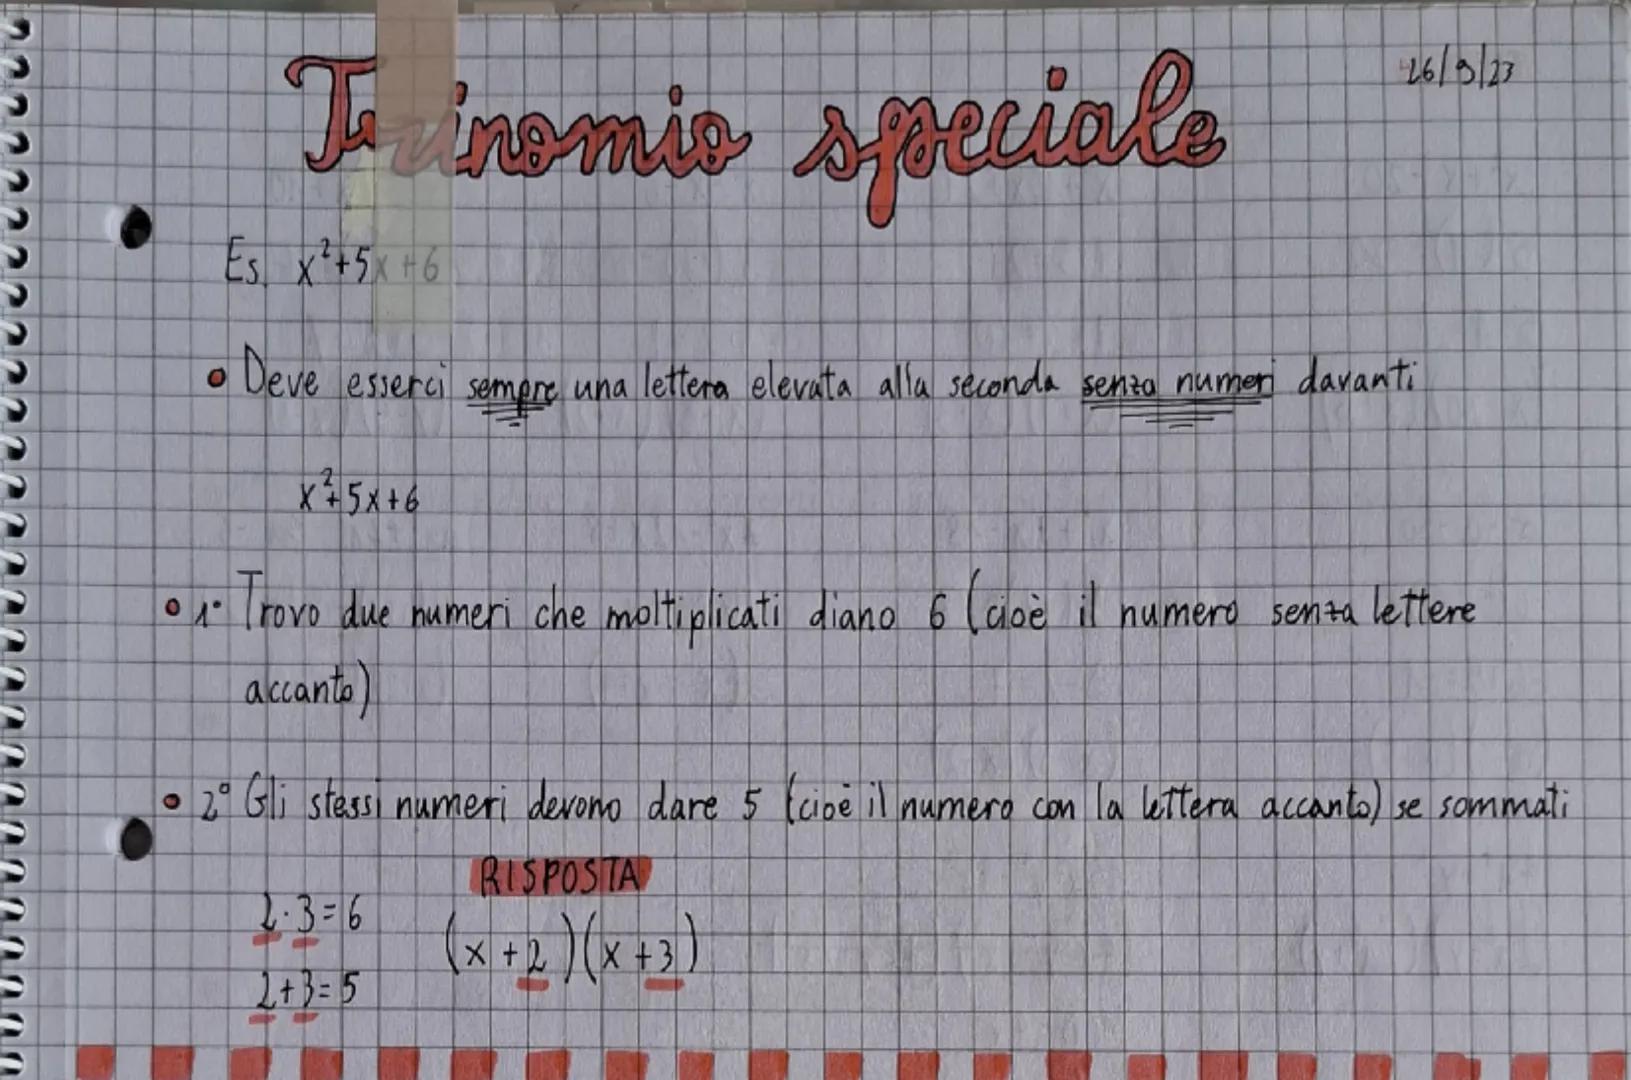 Trinomio speciale
26/9/23
Es. x²+5x+6
Deve esserci sempre una lettera elevata alla seconda senza numeri davanti
x²+5x+6
1° Trovo due numeri che moltiplicati diano 6 (cioè il numero senza lettere
accanto)
2° Gli stessi numeri devono dare 5 (cioè il numero con la lettera accanto) se sommati
RISPOSTA
2·3=6
(x+2)(x+3)
2+3=5